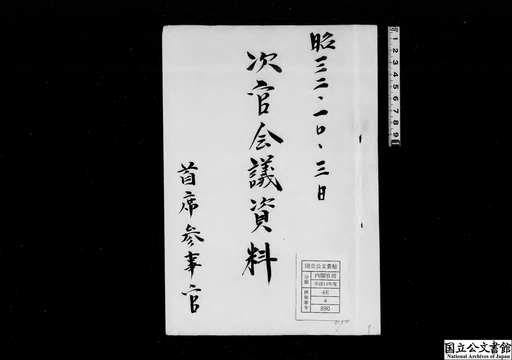 昭三二・一〇・三日
次官会議資料
首席参事官
国立公文書館
分類
内閣官房
平成14年度
排架番号
4E
4
890
国立公文書館
National Archives of Japan